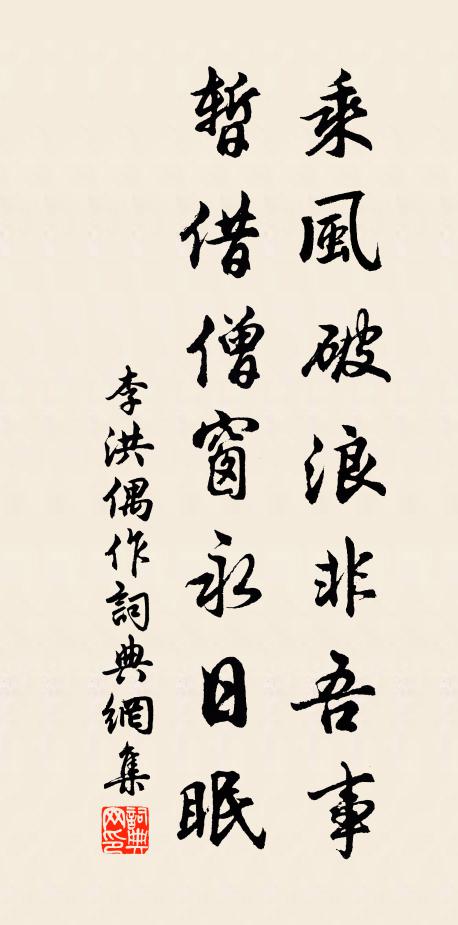 乘風破浪非吾事
暫借僧窗永日眠
李洪偶作詞典網集
詞典
网印